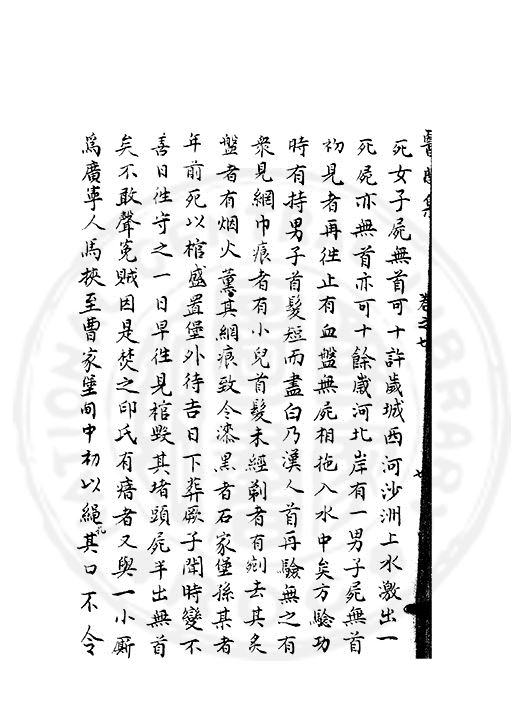 死女子屍無首可十許歲城西河沙洲上水激出一
死屍亦無首亦可十餘歲河北岸有一男子屍無首
初見者再徃止有血盤無屍相拖入水中矣方驗功
時有持男子首髮短而盡白乃漢人首再驗無之有
衆見網巾痕者有小兒首髮未經剃者有剜去其炙
盤者有烟火薰其網痕致令漆黑者石家堡孫某者
年前死以棺盛置堡外待吉日下葬厥子聞時變不
善日徃守之一日早徃見棺毀其堵頭屍半出無首
矣不敢聲冤賊因是焚之邱氏有瘖者又與一小厮
爲廣寧人馬挾至曹家堡向中初以繩扎其口不令